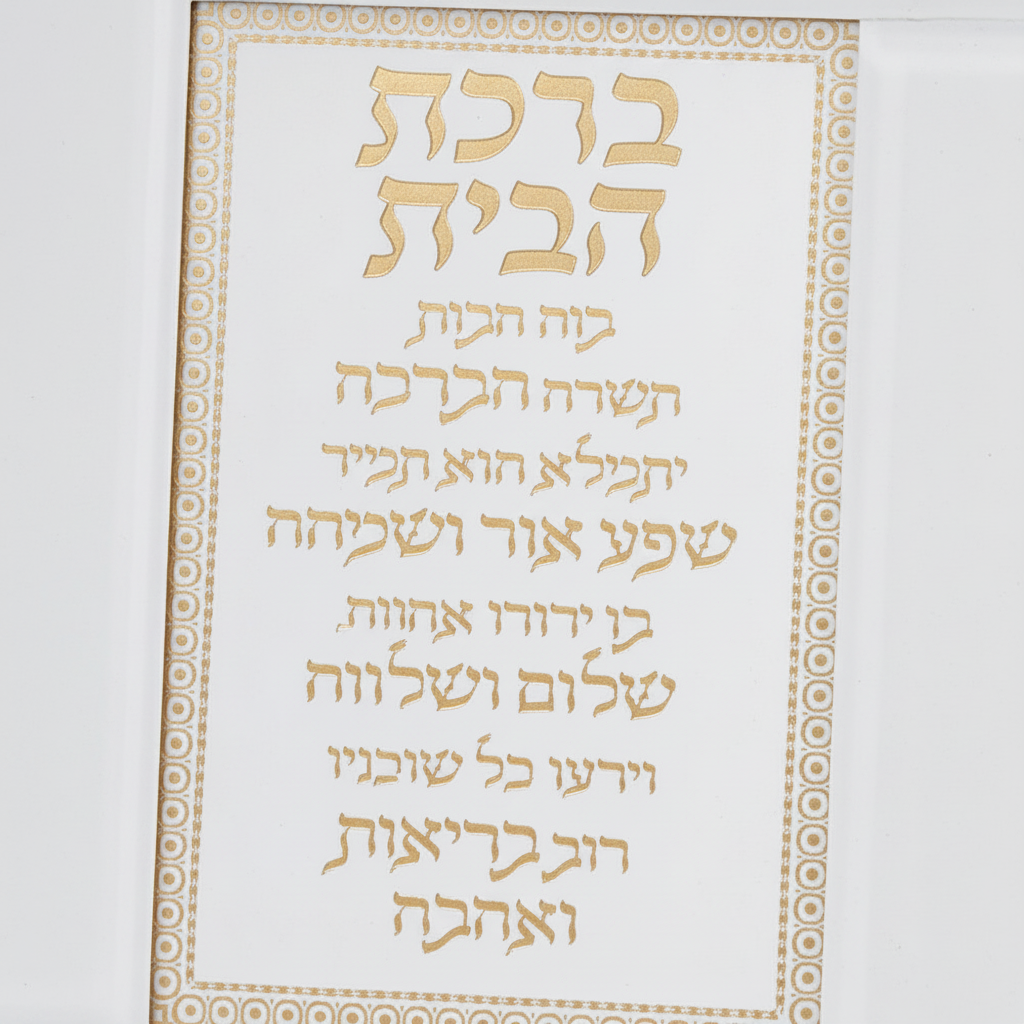 ברכת
הבית
בזה הבית
תשרה הברכה
יתמלא הוא תמיד
שפע אור ושמחה
בו ידורו אחוות
שלום ושלווה
וידעו כל שוכניו
רוב בריאות
ואהבה